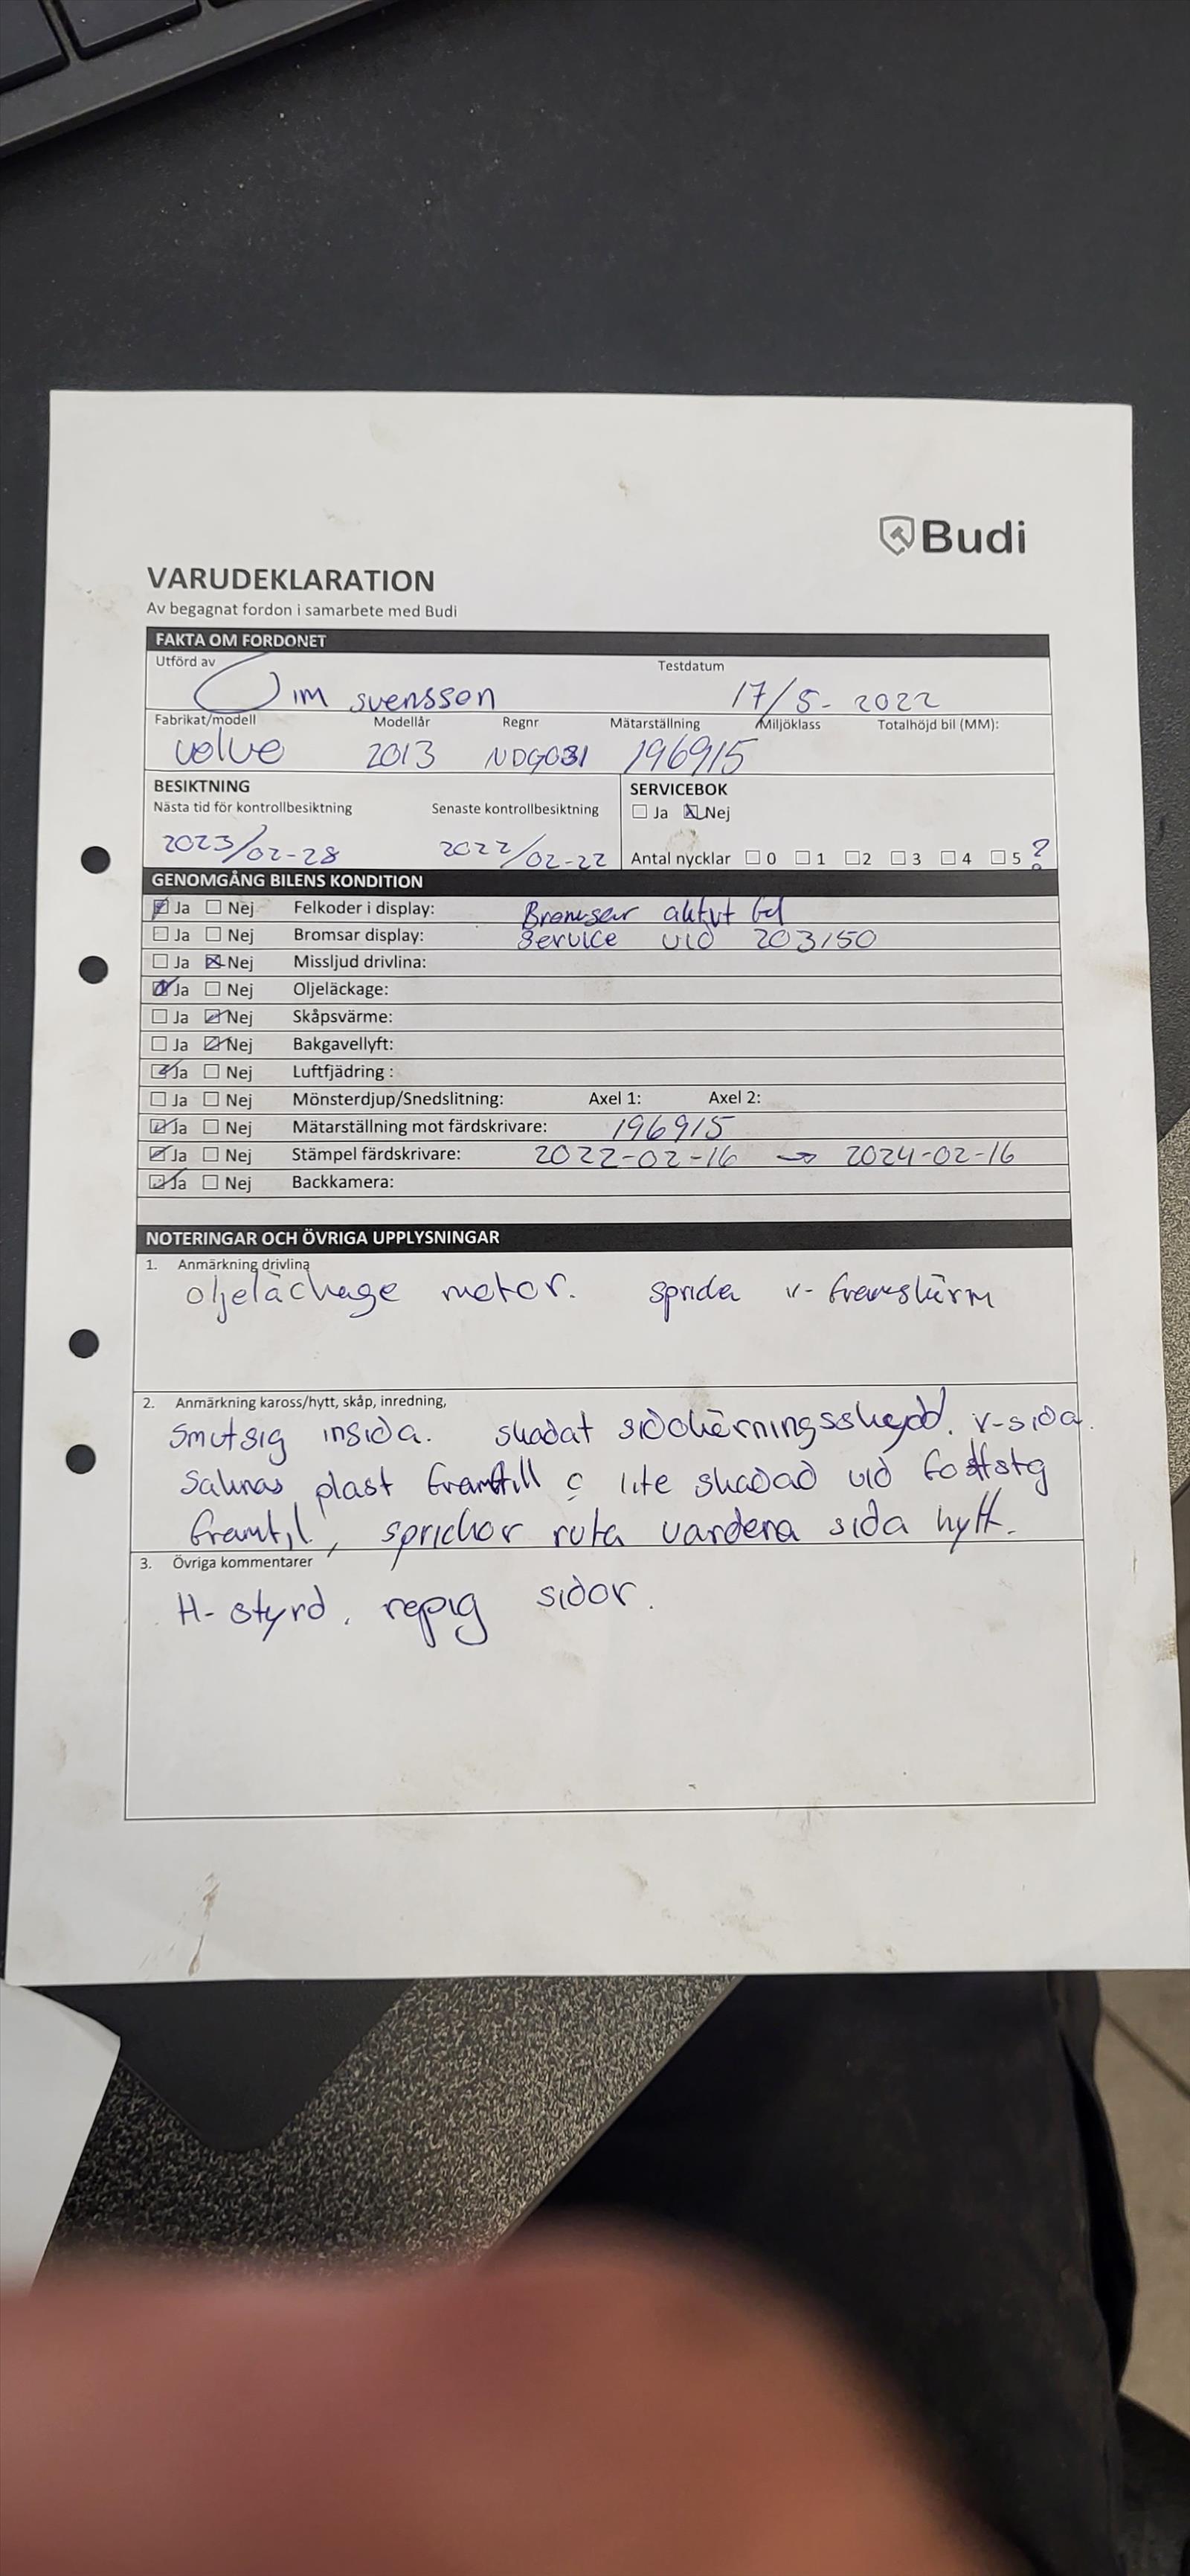 Budi
VARUDEKLARATION
Av begagnat fordon i samarbete med Budi
FAKTA OM FORDONET
Utförd av Testdatum
Jim svensson 17/5-2022
Fabrikat/modell Modellår Regnr Mätarställning Miljöklass Totalhöjd bil (MM):
volvo 2013 196915
BESIKTNING SERVICEBOK
Nästa tid för kontrollbesiktning Senaste kontrollbesiktning ☐ Ja ☒ Nej
2023/02-28 2022/02-22 Antal nycklar ☐ 0 ☐ 1 ☐ 2 ☐ 3 ☐ 4 ☐ 5 ?
GENOMGÅNG BILENS KONDITION
☒ Ja ☐ Nej Felkoder i display: Bromsar aktivt fel
☐ Ja ☐ Nej Bromsar display: Service vid 203150
☐ Ja ☒ Nej Missljud drivlina:
☒ Ja ☐ Nej Oljeläckage:
☐ Ja ☒ Nej Skåpsvärme:
☐ Ja ☒ Nej Bakgavellyft:
☒ Ja ☐ Nej Luftfjädring :
☐ Ja ☐ Nej Mönsterdjup/Snedslitning: Axel 1: Axel 2:
☒ Ja ☐ Nej Mätarställning mot färdskrivare: 196915
☒ Ja ☐ Nej Stämpel färdskrivare: 2022-02-16 → 2024-02-16
☒ Ja ☐ Nej Backkamera:
NOTERINGAR OCH ÖVRIGA UPPLYSNINGAR
1. Anmärkning drivlina
oljeläckage motor. v-framskärm
2. Anmärkning kaross/hytt, skåp, inredning,
Smutsig insida. skadat sidokörningsskydd. v-sida.
Saknas plast framtill lite skadad vid fotstg
framtil, sprickor ruta vardera sida hytt.
3. Övriga kommentarer
H-styrd, repig sidor.